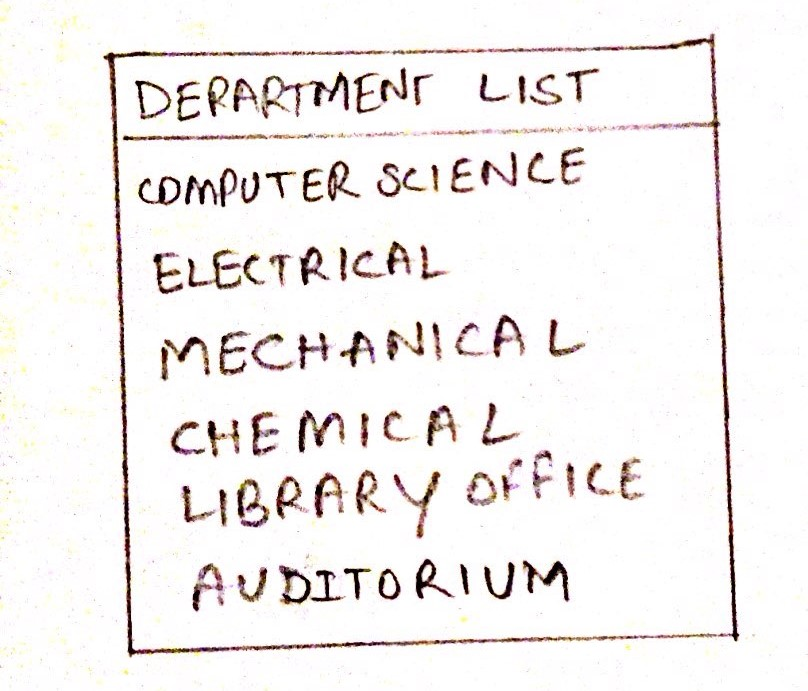 DEPARTMENT LIST
COMPUTER SCIENCE
ELECTRICAL
MECHANICAL
CHEMICAL
LIBRARY OFFICE
AUDITORIUM